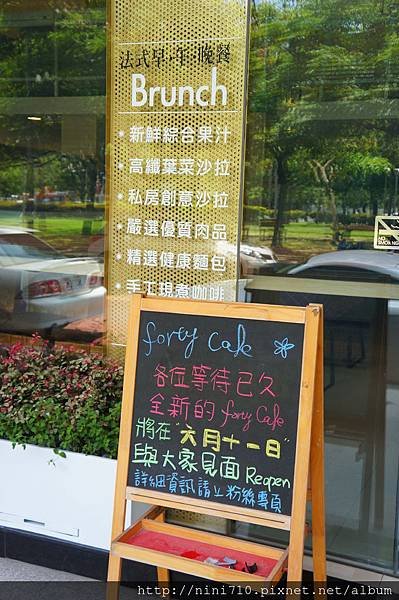 法式早.午.晚餐
Brunch
• 新鮮綜合果汁
• 高纖葉菜沙拉
• 私房創意沙拉
• 嚴選優質肉品
• 精選健康麵包
• 手工現煮咖啡
NO SMOKING
forty Cafe
各位等待已久
全新的 forty Cafe
將在"六月十一日"
與大家見面 Reopen
詳細資訊請上粉絲專頁
http://nini710.pixnet.net/album